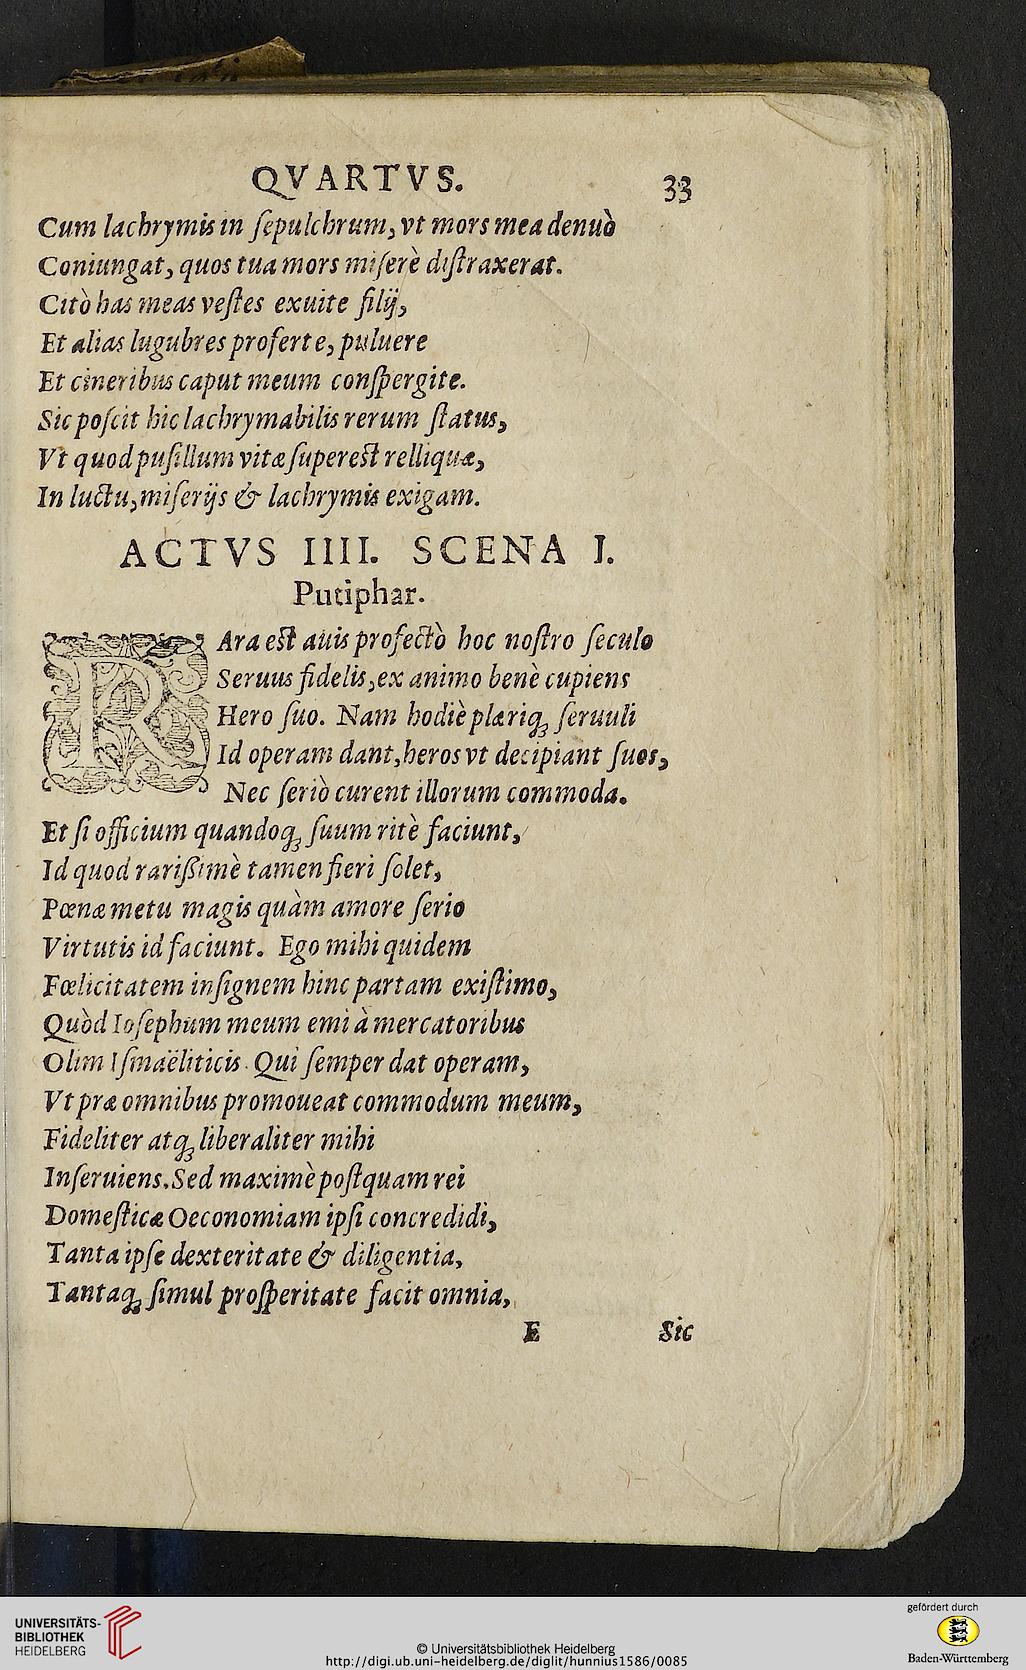 QVARTVS. 33
Cum lachrymis in ſepulchrum, vt mors mea denuò
Coniungat, quos tua mors miſerè diſtraxerat.
Citò has meas veſtes exuite filij,
Et alias lugubres proferte, puluere
Et cineribus caput meum conſpergite.
Sic poſcit hic lachrymabilis rerum ſtatus,
Vt quod puſillum vitæ ſupereſt relliquæ,
In luctu, miſerijs & lachrymis exigam.
ACTVS IIII. SCENA I.
Putiphar.
RAra eſt auis profectò hoc noſtro ſeculo
Seruus fidelis, ex animo benè cupiens
Hero ſuo. Nam hodiè plæriq; ſeruuli
Id operam dant, heros vt decipiant ſuos,
Nec ſeriò curent illorum commoda.
Et ſi officium quandoq; ſuum ritè faciunt,
Id quod rarißimè tamen fieri ſolet,
Pœnæ metu magis quàm amore ſerio
Virtutis id faciunt. Ego mihi quidem
Fœlicitatem inſignem hinc partam exiſtimo,
Quòd Ioſephum meum emi à mercatoribus
Olim Iſmaëliticis. Qui ſemper dat operam,
Vt præ omnibus promoueat commodum meum,
Fideliter atq; liberaliter mihi
Inſeruiens. Sed maximè poſtquam rei
Domeſticæ Oeconomiam ipſi concredidi,
Tanta ipſe dexteritate & diligentia,
Tantaq; ſimul proſperitate facit omnia,
E Sic
UNIVERSITÄTS-
BIBLIOTHEK
HEIDELBERG
© Universitätsbibliothek Heidelberg
http://digi.ub.uni-heidelberg.de/diglit/hunnius1586/0085
gefördert durch
Baden-Württemberg